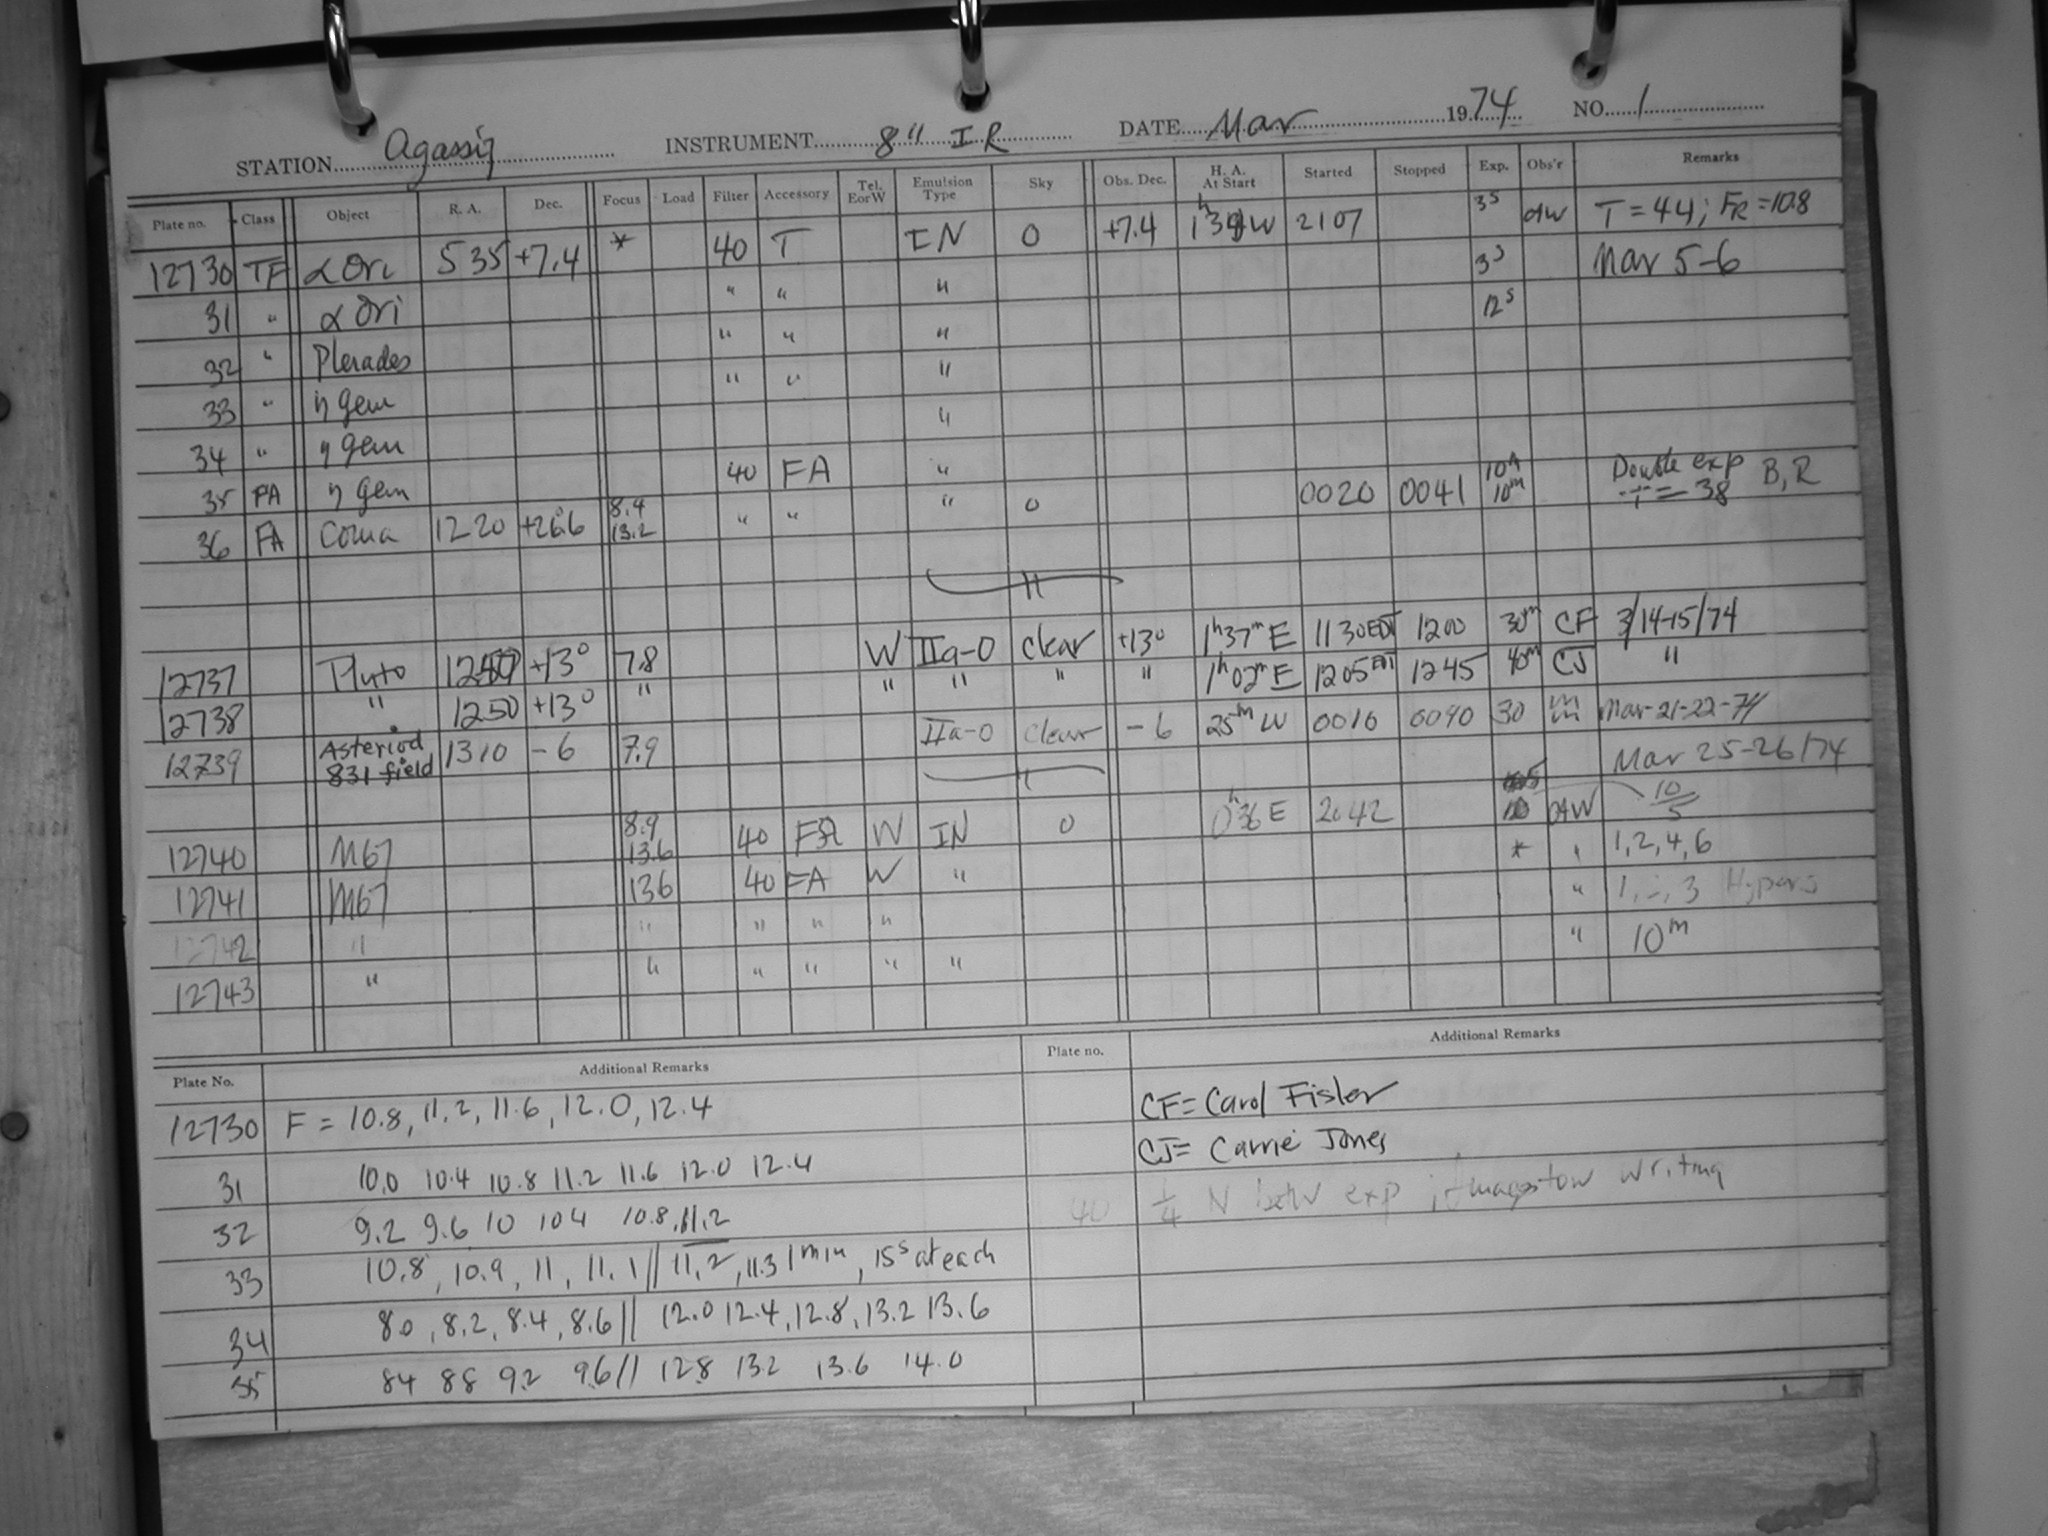 STATION Agassiz INSTRUMENT 8" IR DATE Mar 1974 NO. 1
Plate no. Class Object R. A. Dec. Focus Load Filter Accessory Tel. E or W Emulsion Type Sky Obs. Dec. H. A. At Start Started Stopped Exp. Obs'r Remarks
12730 TF α Ori 5 35 +7.4 * 40 T IN 0 +7.4 W 2107 3s T = 44; FR = 10.8
31 " α Ori " " " 3s Mar 5-6
32 " Pleiades " " " 12s
33 " η gem " " "
34 " η gem "
35 FA η gem 40 FA "
36 FA Coma 12 20 +26.6 8.4 13.2 " " " 0 0020 0041 10m Double exp B, R T = 38
12737 Pluto +13° 7.8 W IIa-O clear +13° 1h37m E 1130 EDT 1200 30m CF 3/14-15/74
12738 " 1250 +13° " " " " " 1h02m E 1205 EDT 1245 40m CJ "
12739 Asteriod 831 field 1310 - 6 7.9 IIa-O clear - 6 25m W 0010 0040 30 Mar-21-22-74
Mar 25-26/74
12740 M67 8.9 13.6 40 FA W IN 0 0h36 E 2042 10 10/5
12741 M67 13.6 40 FA W " * " 1, 2, 4, 6
12742 " " " " " " 1, 3
12743 " " " " " " " 10m
Plate No. Additional Remarks Plate no. Additional Remarks
12730 F = 10.8, 11.2, 11.6, 12.0, 12.4 CF = Carol Fisler
31 10.0 10.4 10.8 11.2 11.6 12.0 12.4 CJ = Carrie Jones
32 9.2 9.6 10 10.4 10.8, 11.2 40 1/4 N betw exp writing
33 10.8, 10.9, 11, 11.1 // 11.2, 11.3 1 min, 15s at each
34 8.0, 8.2, 8.4, 8.6 // 12.0 12.4, 12.8, 13.2 13.6
35 8.4 8.8 9.2 9.6 // 12.8 13.2 13.6 14.0